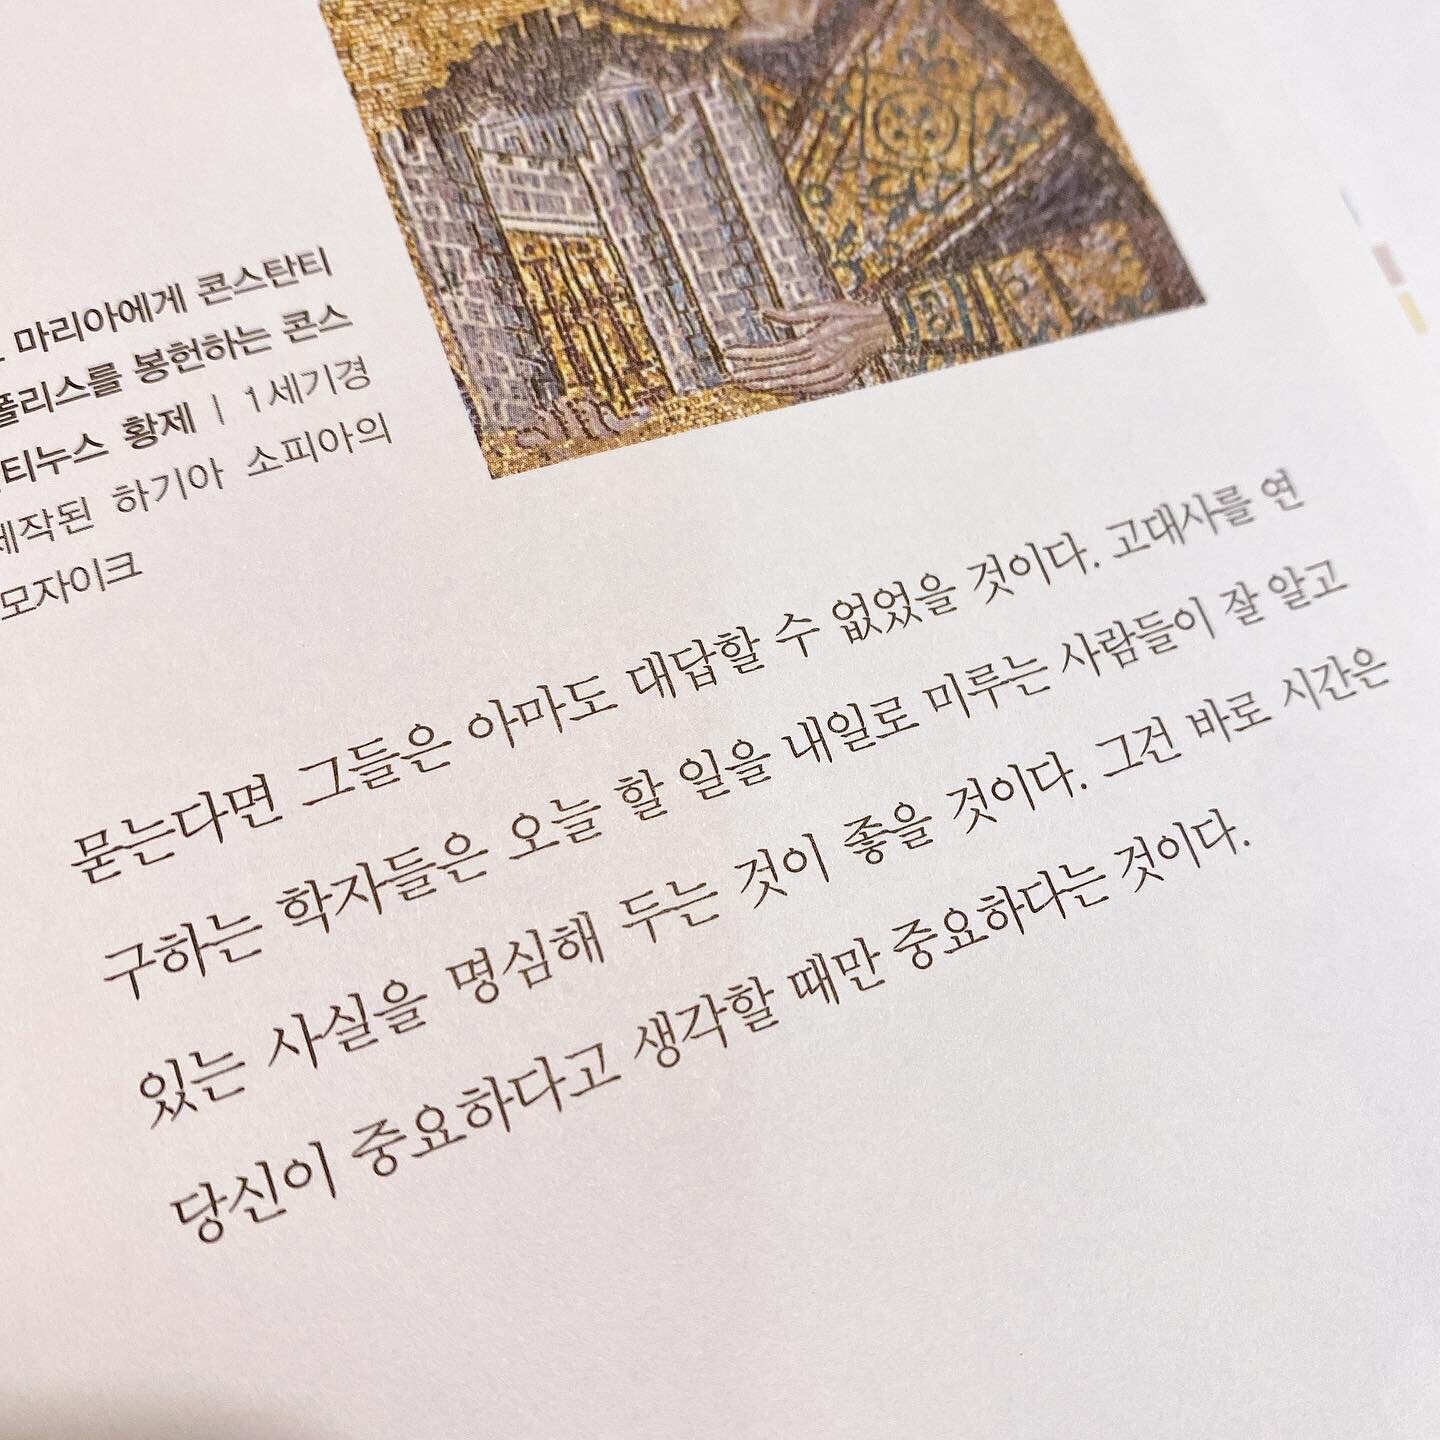 마리아에게 콘스탄티
폴리스를 봉헌하는 콘스
티누스 황제 | 1세기경
제작된 하기아 소피아의
모자이크
묻는다면 그들은 아마도 대답할 수 없었을 것이다. 고대사를 연
구하는 학자들은 오늘 할 일을 내일로 미루는 사람들이 잘 알고
있는 사실을 명심해 두는 것이 좋을 것이다. 그건 바로 시간은
당신이 중요하다고 생각할 때만 중요하다는 것이다.